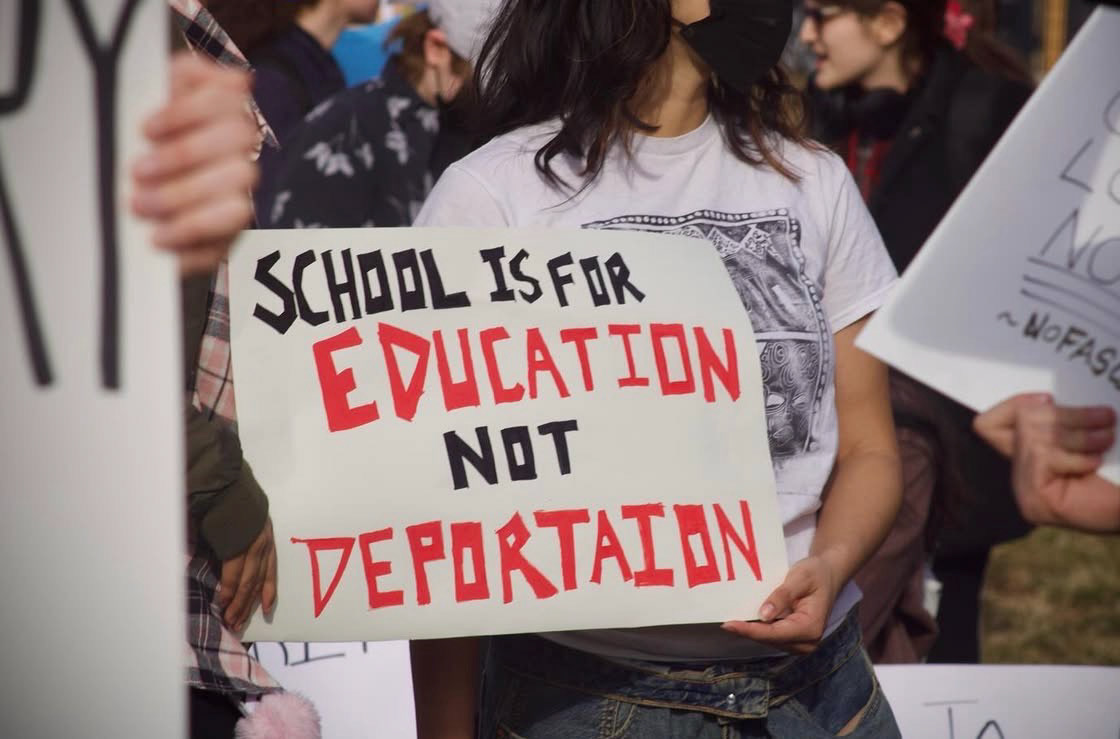 SCHOOL IS FOR
EDUCATION
NOT
DEPORTAION